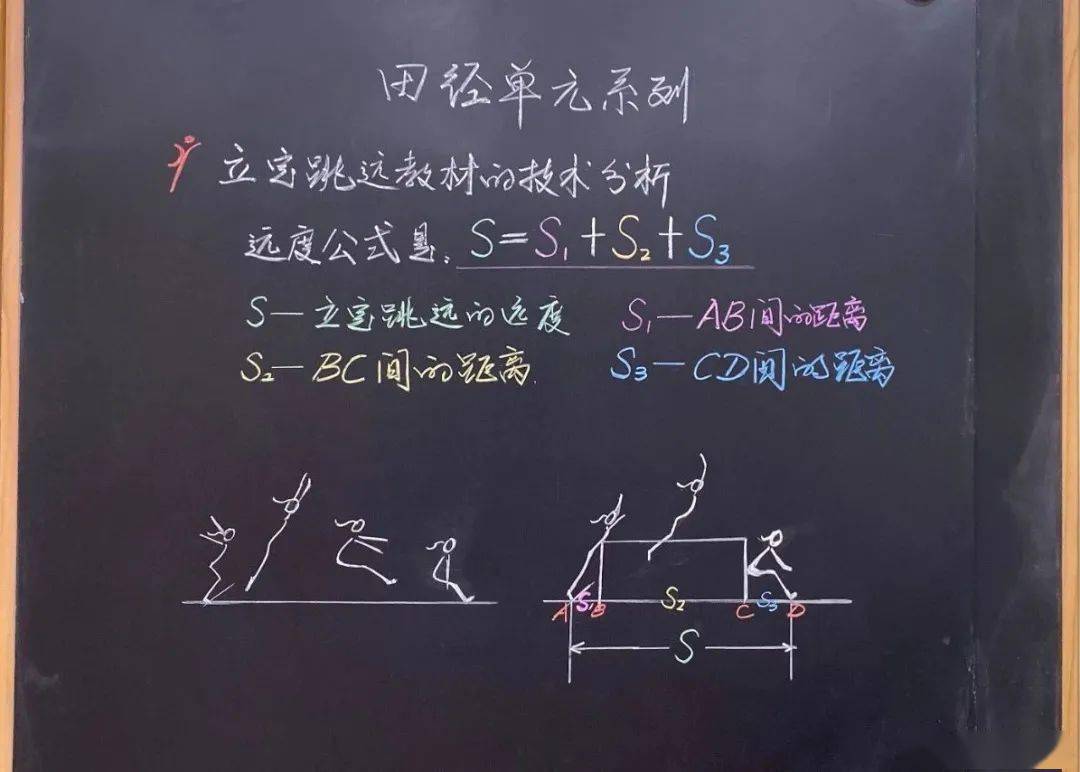 田径单元系列
立定跳远教材的技术分析
远度公式是: S=S₁+S₂+S₃
S—立定跳远的远度 S₁—AB间的距离
S₂—BC间的距离 S₃—CD间的距离
A S₁ B S₂ C S₃ D
S